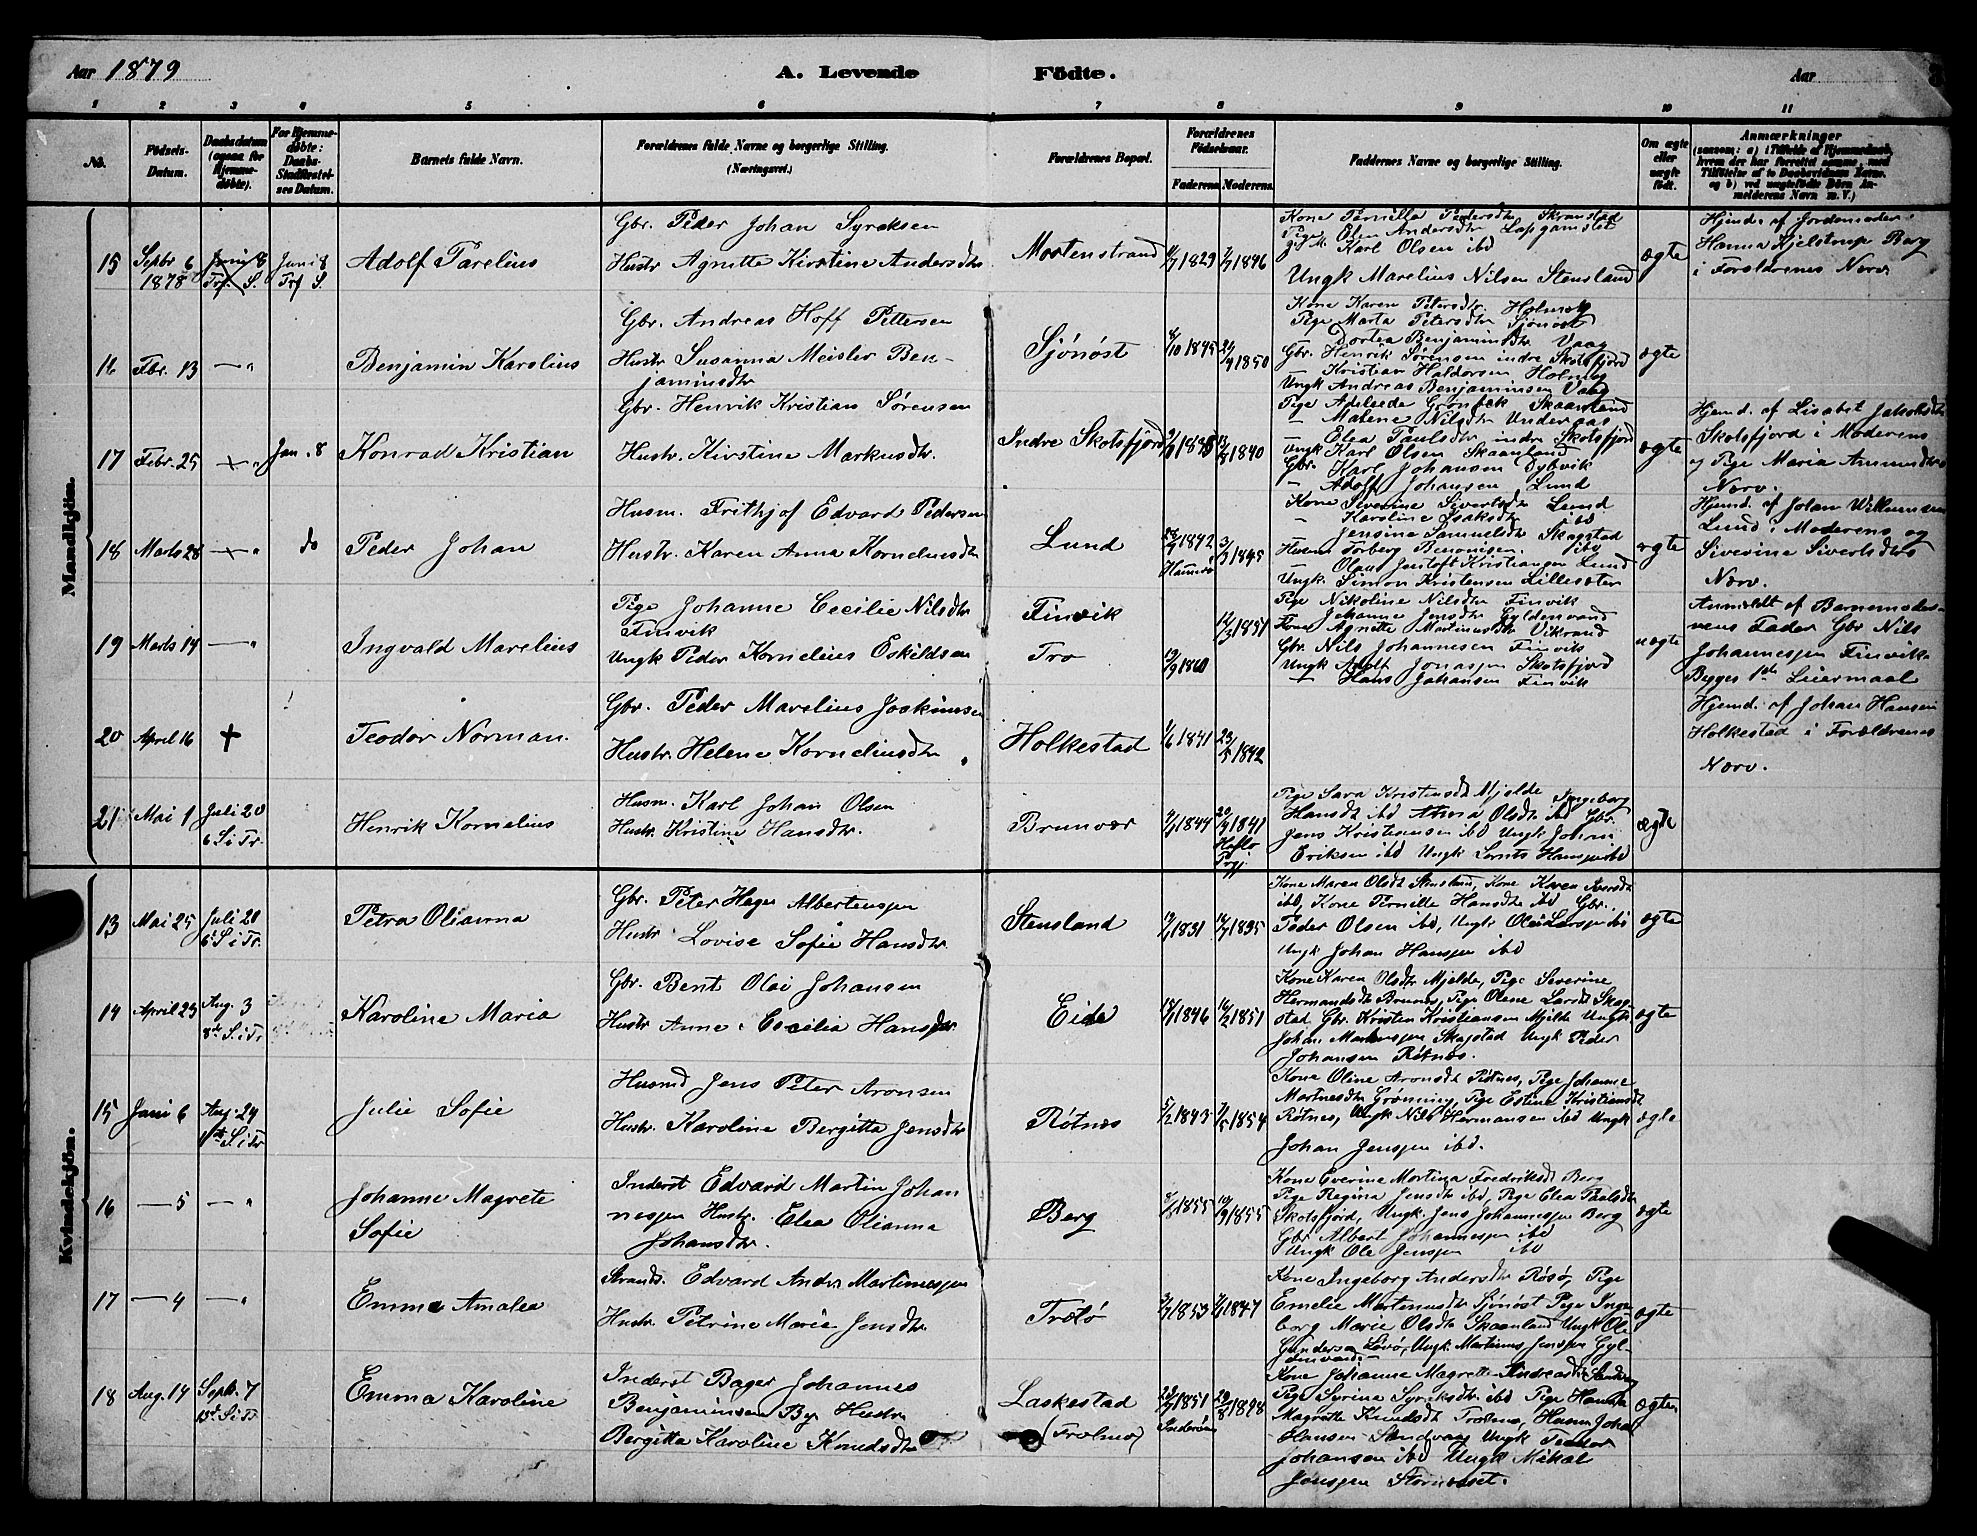 Aar 1879 A. Levende Födte. Aar
1 2 3 4 5 6 7 8 9 10 11
No. Födsels-Datum. Daabsdatum (ogsaa for Hjemme-døbte). For Hjemme-døbte: Daabs-Stadfæstelses Datum. Barnets fulde Navn. Forældrenes fulde Navne og borgerlige Stilling. (Næringsvei.) Forældrenes Bopæl. Forældrenes Födselsaar. Faderens. Moderens. Faddernes Navne og borgerlige Stilling. Om ægte eller uægte født. Anmærkninger
(saasom: a) i Tilfælde af Hjemmedaab, hvem der har forrettet samme, med Tilføielse af to Daabsvidners Navne, og b) ved uægtefødte Børn Anmelderens Navn m. V.)
Mandkjön.
15 Septbr 6 1878 Juni 8 Trf. S. Juni 8 Trf S. Adolf Parelius
Gbr. Peder Johan Syraksen
Hustr Agnitte Kirstine Andersdtr
Mortenstrand 1829 1846
Kone Pernilla Pedersdtr Skranstad
Pige Olea Andersdtr Lapgamslet
Karl Olsen ibd
Ungk Marelius Nilsen Stensland
ægte
Hjemd. af Jordemoder
Hanna Kjelstrup Berg
i Forældrenes Nærv.
16 Fbr. 13 — " Benjamin Karolius
Gbr. Andreas Hoff Pettersen
Hustr Susanna Meisler Ben-
jaminsdtr
Sjönöst 1845 1850
Kone Karen Petersdtr Holmvg
Pige Marta Petersdtr Sjönöst
Dortea Benjaminsdtr Vaag
Gbr. Henrik Sørensen indre Skotsfjord
— Kristian Haldorsen Holmvg
Ungk Andreas Benjaminsen Vaag
ægte
17 Febr. 25 — " Jun. 8 Konrad Kristian
Gbr. Henrik Kristian Sørensen
Hustr. Kirstine Markusdtr.
Indre Skotsfjord 1840
Pige Adeleide Grönbek Skaanland
— Malene Nilsdtr Underaas
— Elea Paulsdtr indre Skotsfjord
Ungk Karl Olsen Skaanland
Gbr. Karl Johansen Dybvik
— Adolf Johansen Lund
ægte
Hjemd. af Lisabet Jakobsdtr
Skotsfjord i Moderens
og Pige Maria Amundsdtr
Nærv.
18 Marts 28 — " do Peder Johan
Husm. Frithjof Edvard Pedersen
Hustr. Karen Anna Korneliusdtr
Lund 1842 Hammerø 1845
Kone Siverine Sivertsdtr Lund
— Karoline Isaksdtr ibd
— Jensina Samuelsdtr Skagstad
Husm Torberg Benonisen ibd
— Olaus Justoft Kristiansen Lund
Ungk. Simon Kristensen Lillesæter
ægte
Hjemd. af Johan Vilhumsen
Lund i Moderens og
Siverine Sivertsdtrs
Nærv.
19 Marts 14 — " Ingvald Marelius
Pige Johanne Cecilie Nilsdtr
Finvik
Ungk Peder Kornelius Eskildsen
Finvik
Tro 1860 1851
Pige Nikoline Nilsdtr Finvik
— Johanne Jensdtr Gyldenvand
Kone Agnitte Martinusdtr Vikrand
Gbr. Nils Johannesen Finvik
Ungk Adolf Jonassen Skotsfjord
— Hans Johansen Finvik
uægte
Anmeldt af Barnemode-
rens Fader Gbr Nils
Johannesen Finvik.
Begges 1ste Leiermaal
20 April 16 + Teodor Norman.
Gbr. Peder Marelius Joakimsen
Hustr. Helene Korneliusdtr
Holkestad 1841 1842
Hjemd. af Johan Hansen
Holkestad i Forældrenes
Nærv.
21 Mai 1 Juli 20 6 S i Tr. Henrik Kornelius
Husm. Karl Johan Olsen
Hustr. Kristine Hansdtr.
Brunvær 1844 1841
Pige Sara Kristensdtr Mjelde Ingeborg
Hansdtr ibd Anna Olsdtr ibd Gbr.
Jens Kristiansen ibd Ungk Johan
Eriksen ibd Ungk Lornts Hansen ibd
ægte
Kvindekjön.
13 Mai 25 Juli 20 6 S i Tr. Petra Olianna
Gbr. Peter Hager Albertensen
Hustr Lovise Sofie Hansdtr.
Stensland 1831 1835
Kone Maren Olsdtr Stensland, Kone Karen Iversdtr
ibd, Kone Pernille Hansdtr ibd Gbr.
Peder Olsen ibd, Ungk Ole Larsen ibd
Ungk Johan Hansen ibd
ægte
14 April 23 Aug. 3 8de S. i Tr Karoline Maria
Gbr. Bent Olai Johansen
Hustr. Anne Cecilia Hansdtr
Eide 1846 1851
Kone Karen Olsdtr Mjelde, Pige Severine
Hermandsdtr Brunes, Pige Olene Larsdtr Skag-
stad Gbr. Kristen Kristiansen Mjelde Ungk
Johan Markussen Skagstad Ungk Peder
Johansen Rötnes.
ægte
15 Juni 6 Aug. 24 S. i Tr Julie Sofie
Husmd Jens Peter Aronsen
Hustr. Karoline Bergitta Jensdtr
Rötnes 1843 1854
Kone Oline Aronsdtr Rötnes, Pige Johanne
Martnesdtr Grönning, Pige Estine Kristiansdtr
Rötnes, Ungk Nils Hermansen ibd Ungk
Johan Jenssen ibd.
ægte
16 — 5 — " Johanne Magrete
Sofie
Inderst Edvard Martin Johan
nessen Hustr. Elea Olianna
Johansdtr.
Berg 1855 1855
Kone Everine Martina Fredriksdtr Berg
Pige Regina Jensdtr ibd, Pige Elea Paulsdtr
Skotsfjord, Ungk. Jens Johannessen Berg
Gbr Albert Johannessen ibd
Ungk Ole Jenssen ibd
ægte
17 — 4 — " Emma Amalea
Strands. Edvard Andr. Martinussen
Hustr Petrine Marie Jensdtr
Trolö 1853 1847
Kone Ingeborg Andersdtr Rösö, Pige
Emelie Martenusdtr Sjönöst Pige Inge
borg Marie Olsdtr Skaanland Ungk Ole
Gundersen Lövö, Ungk. Martinus Jenssen Gyl-
denvand.
ægte
18 Aug. 14 Septr. 7 13de S i Tr Emma Karoline
Inderst Bager Johannes
Benjaminsen By Hustr
Bergitta Karoline Knudsdtr
Laskestad
(Trolnes) 1851 Inderøen
Kone Johanne Magrette Andreasdtr
Pige Syrina Syriksdtr ibd Pige Hansina
Magrette Knudsdtr Trolnes, Husm Johan
Hansen Sandvaag Ungk Teodor
Johansen ibd Ungk Mikal
Jenssen Stormoset.
ægte